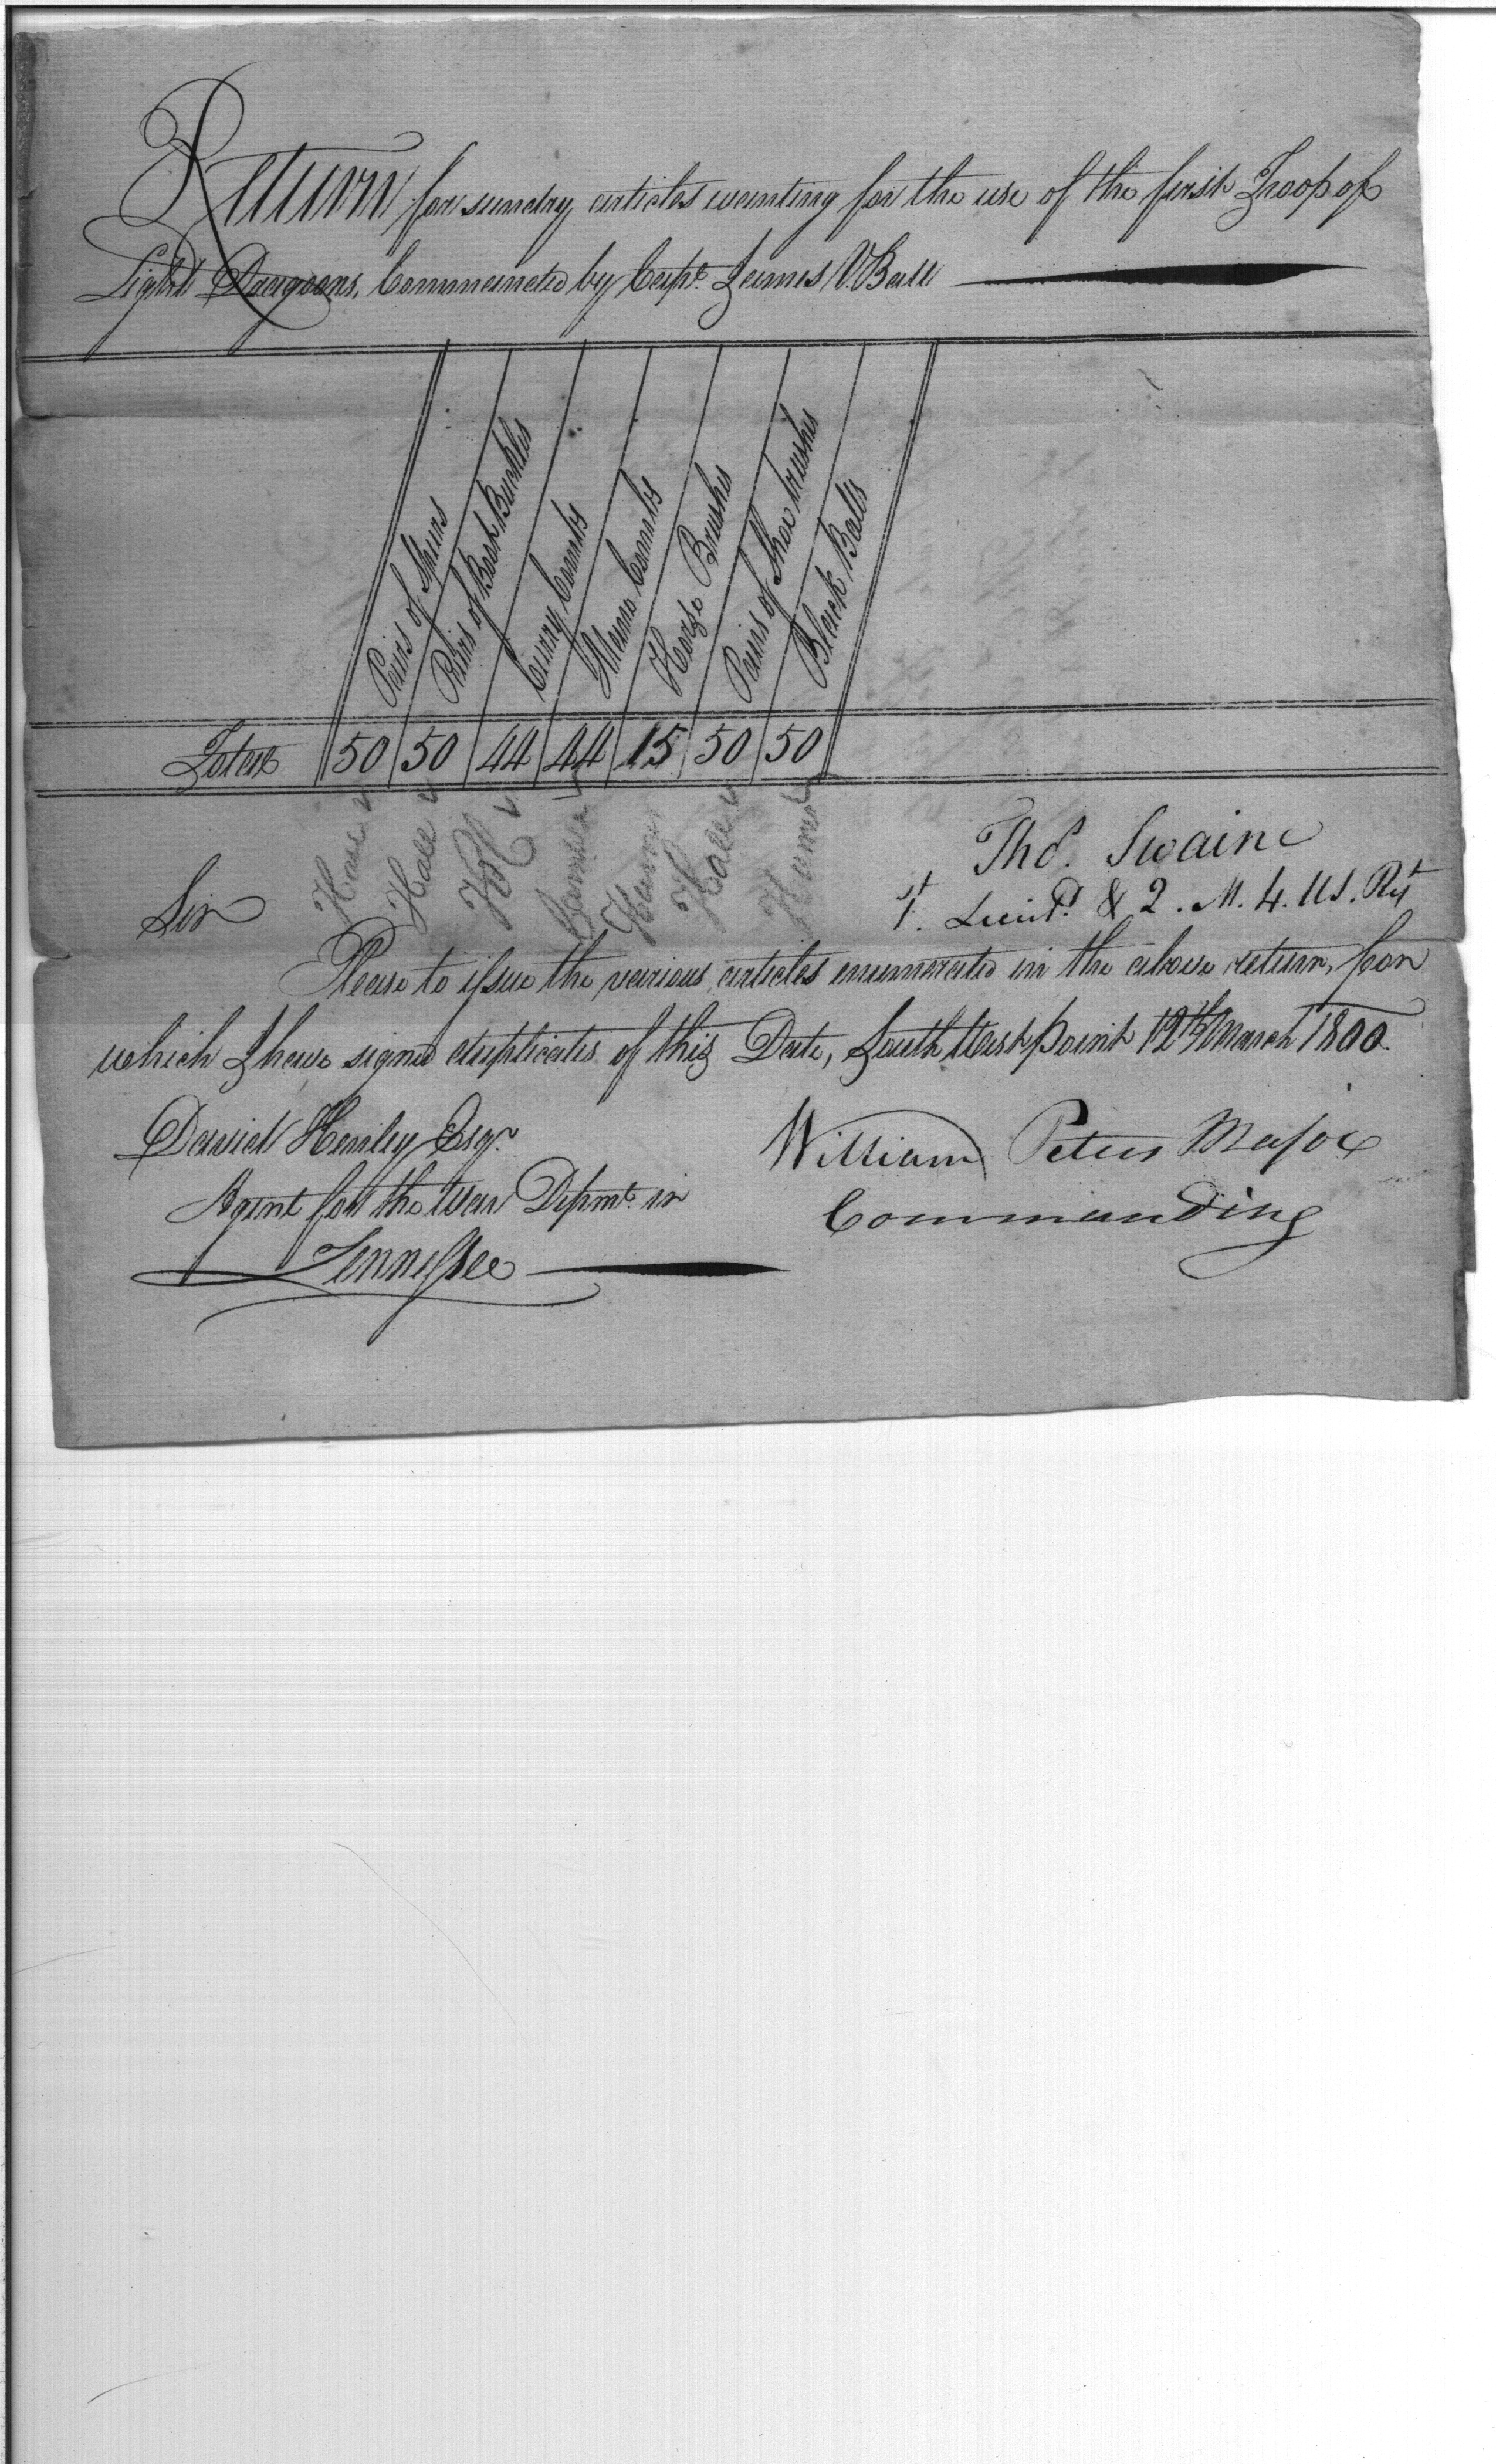 Return for sundry articles wanting for the use of the first Troop of
Light Dragoons, Commanded by Capt. James V. Ball
Pairs of Spurs
Pairs of Boot Buckles
Curry Combs
Mane Combs
Horse Brushes
Pairs of Shoe brushes
Black Balls
Total 50 50 44 44 15 50 50
Hall
Hall
Hall
Thos. Swaine
1st. Lieut. & 2. M. 4. US. Rgt
Sir
Please to issue the various articles enumerated in the above return, for
which I have signed duplicates of this Date, South West point 12th March 1800.
David Henley Esqr.
Agent for the War Depmt. in
Tennessee
William Peters Major
Commanding